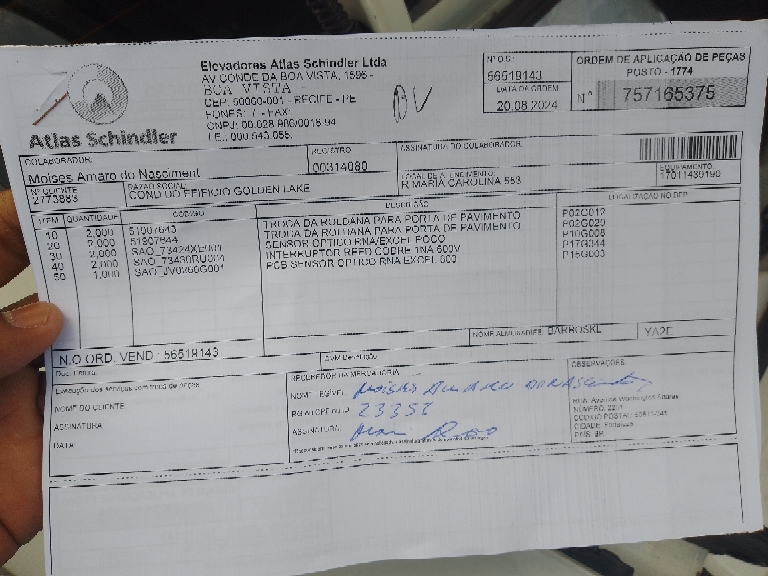 Atlas Schindler
Elevadores Atlas Schindler Ltda
AV CONDE DA BOA VISTA, 1596 -
BOA VISTA -
CEP. 50060-001 - RECIFE - PE
FONES: / - FAX:
CNPJ: 00.028.986/0018-94
I.E.: 000.543.055.
Nº O.S.:
56519143
DATA DA ORDEM
20.08.2024
ORDEM DE APLICAÇÃO DE PEÇAS
POSTO - 1774
Nº 757165375
COLABORADOR:
Moises Amaro do Nasciment
REGISTRO
00314080
ASSINATURA DO COLABORADOR
Nº CLIENTE
2773883
RAZAO SOCIAL
COND DO EDIFICIO GOLDEN LAKE
LOCAL DE ATENDIMENTO:
R MARIA CAROLINA 583
EQUIPAMENTO
ITEM QUANTIDADE CODIGO DESCRIÇÃO LOCALIZAÇÃO NO DEP.
10 2,000 51907643 TROCA DA ROLDANA PARA PORTA DE PAVIMENTO P02G012
20 2,000 51907644 TROCA DA ROLDANA PARA PORTA DE PAVIMENTO P02G020
30 2,000 SENSOR OPTICO RNA/EXCEL POCO P10G008
40 2,000 INTERRUPTOR REED COBRE 1NA 600V P17G344
50 1,000 PCB SENSOR OPTICO RNA EXCEL 600 P15G003
NOME ALMOXARIFE: BARROSKL
N.O ORD. VEND.: 56519143
Execução dos serviços com troca de peças
NOME DO CLIENTE
ASSINATURA
DATA:
RECEBEDOR DA MERCADORIA
NOME LEGÍVEL: Moises
RG ou CPF ou ID.: 23352
ASSINATURA:
OBSERVAÇÕES:
RUA: Avenida Washington Soares
CIDADE: Fortaleza
PAIS: BR